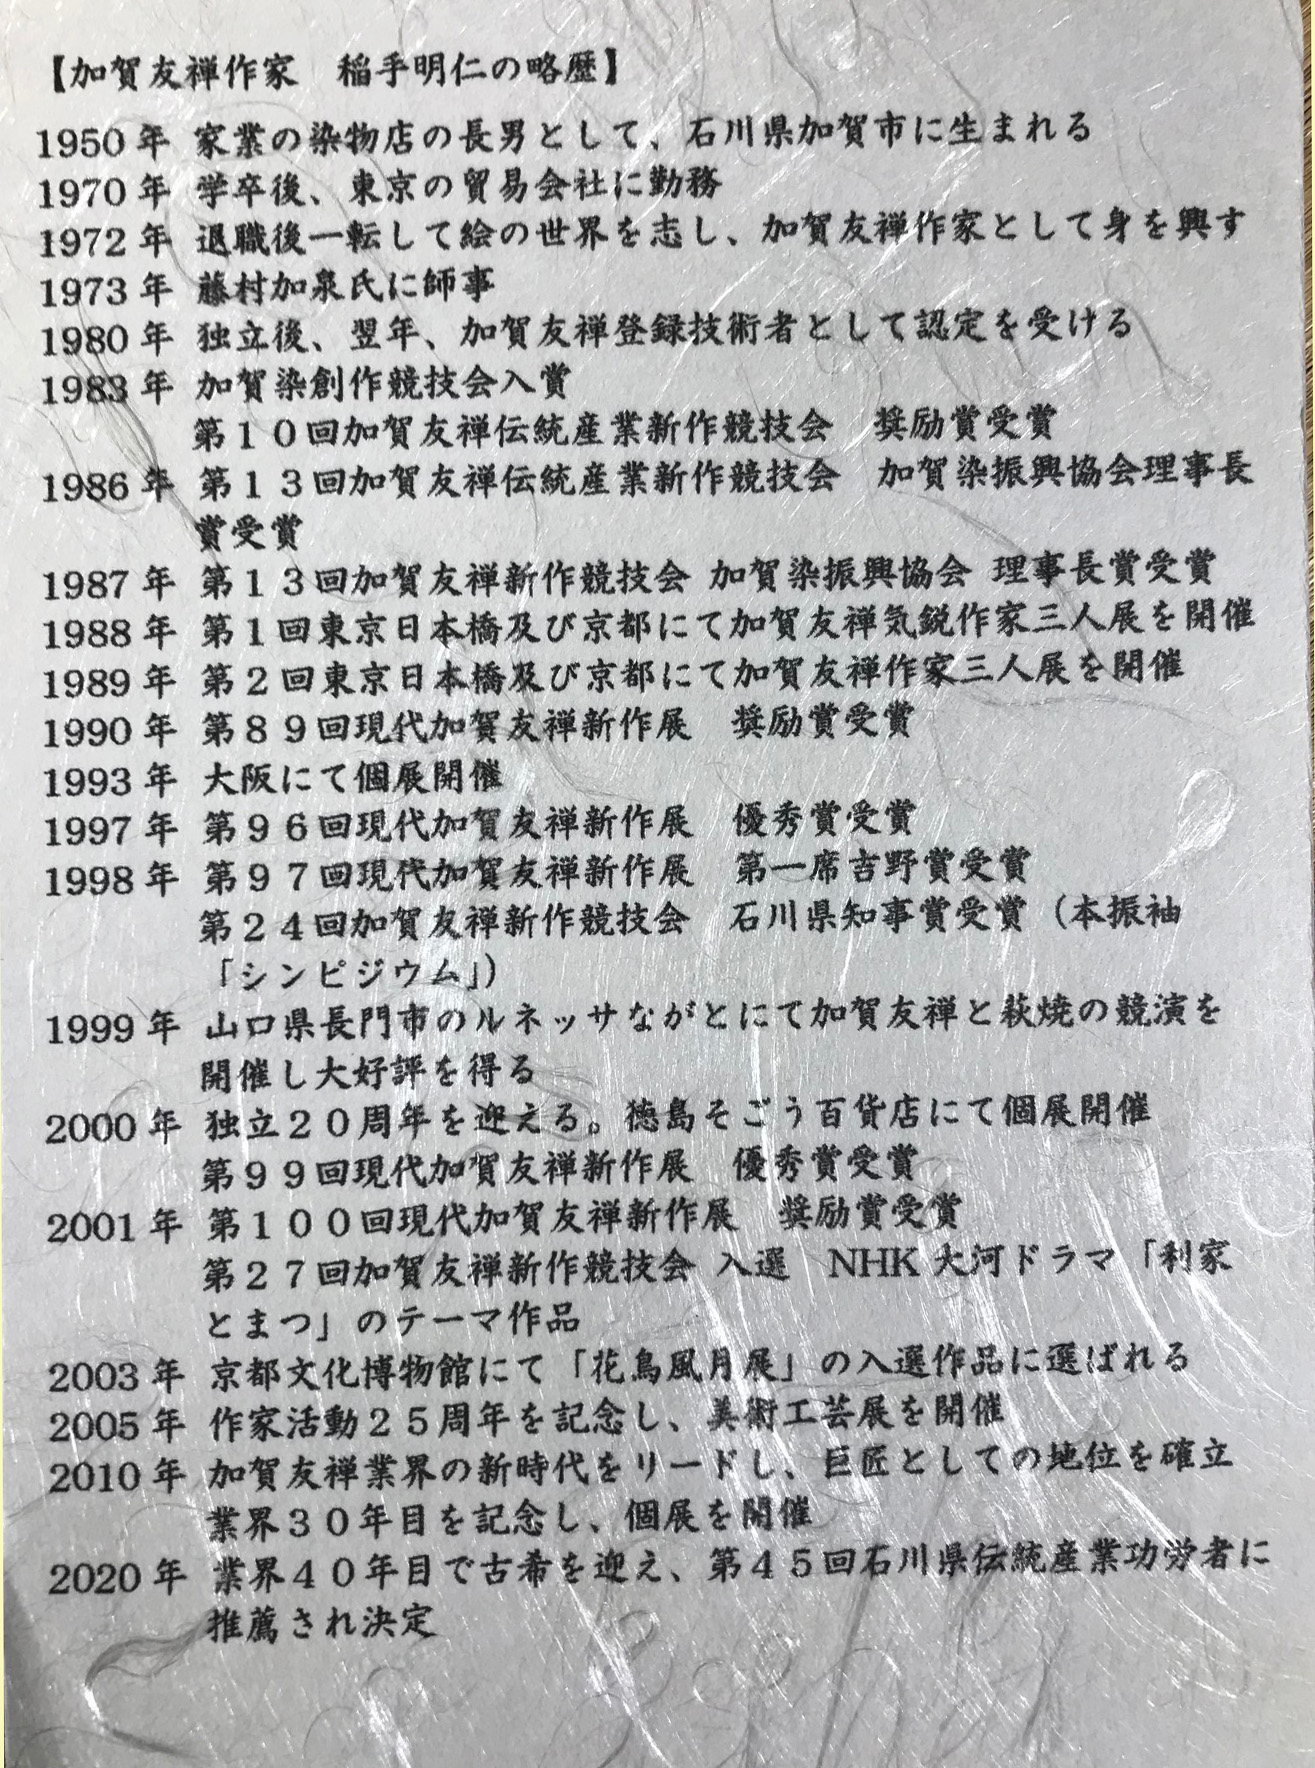 【加賀友禅作家　稲手明仁の略歴】
1950年 家業の染物店の長男として、石川県加賀市に生まれる
1970年 学卒後、東京の貿易会社に勤務
1972年 退職後一転して絵の世界を志し、加賀友禅作家として身を興す
1973年 藤村加泉氏に師事
1980年 独立後、翌年、加賀友禅登録技術者として認定を受ける
1983年 加賀染創作競技会入賞
第１０回加賀友禅伝統産業新作競技会　奨励賞受賞
1986年 第１３回加賀友禅伝統産業新作競技会　加賀染振興協会理事長
賞受賞
1987年 第１３回加賀友禅新作競技会 加賀染振興協会 理事長賞受賞
1988年 第１回東京日本橋及び京都にて加賀友禅気鋭作家三人展を開催
1989年 第２回東京日本橋及び京都にて加賀友禅作家三人展を開催
1990年 第８９回現代加賀友禅新作展　奨励賞受賞
1993年 大阪にて個展開催
1997年 第９６回現代加賀友禅新作展　優秀賞受賞
1998年 第９７回現代加賀友禅新作展　第一席吉野賞受賞
第２４回加賀友禅新作競技会　石川県知事賞受賞（本振袖
「シンピジウム」）
1999年 山口県長門市のルネッサながとにて加賀友禅と萩焼の競演を
開催し大好評を得る
2000年 独立２０周年を迎える。徳島そごう百貨店にて個展開催
第９９回現代加賀友禅新作展　優秀賞受賞
2001年 第１００回現代加賀友禅新作展　奨励賞受賞
第２７回加賀友禅新作競技会 入選　NHK大河ドラマ「利家
とまつ」のテーマ作品
2003年 京都文化博物館にて「花鳥風月展」の入選作品に選ばれる
2005年 作家活動２５周年を記念し、美術工芸展を開催
2010年 加賀友禅業界の新時代をリードし、巨匠としての地位を確立
業界３０年目を記念し、個展を開催
2020年 業界４０年目で古希を迎え、第４５回石川県伝統産業功労者に
推薦され決定